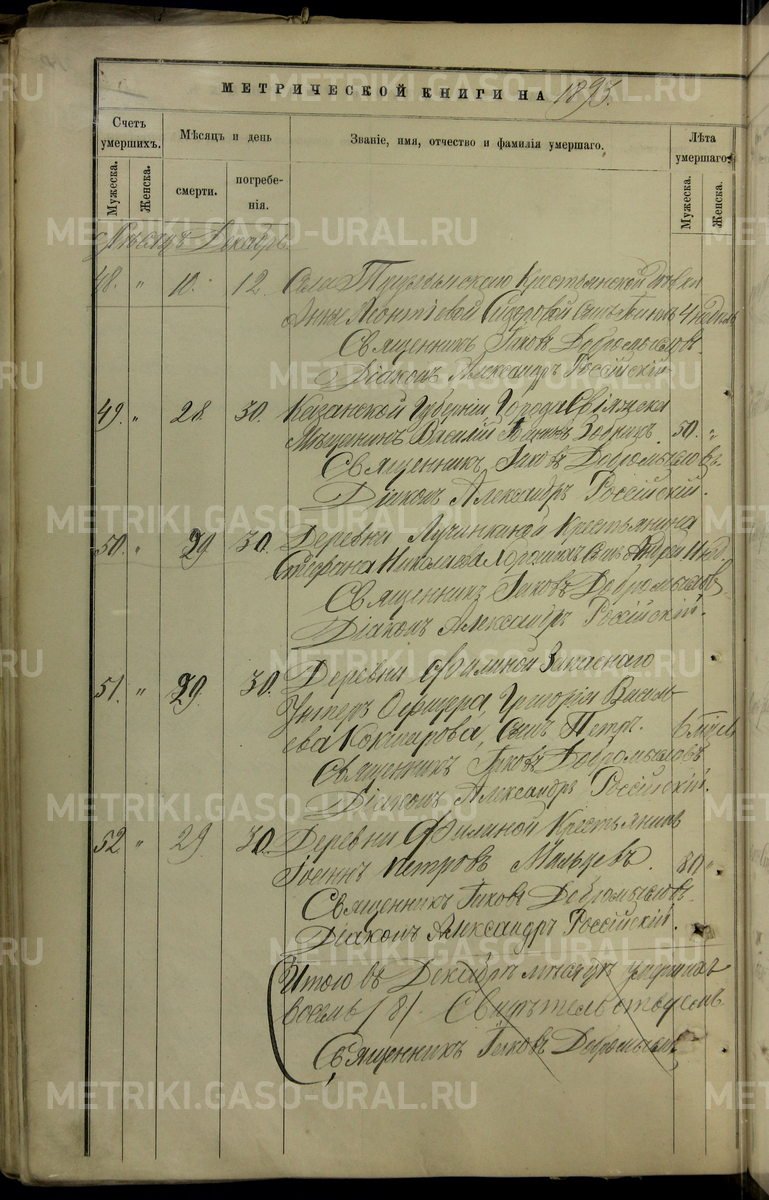 МЕТРИЧЕСКОЙ КНИГИ НА 1895.
Счетъ умершихъ.
Мѣсяцъ и день
Званіе, имя, отчество и фамилія умершаго.
Лѣта умершаго.
Мужеска.
Женска.
смерти.
погребенія.
Мужеска.
Женска.
Мѣсяцъ Декабрь
48. " 10. 12 Села Крестьянской дѣвки
Анны Леонтьевой Сидоровой сынъ 4 недѣль
Священникъ Іаковъ Добромысловъ.
Діаконъ Александръ Россійскій
49. " 28. 30. Казанской Губерніи Города Свіяжска
Мѣщанинъ Василій 50. "
Священникъ Іаковъ Добромысловъ
Діаконъ Александръ Россійскій.
50. " 29 30. Деревни Лучинкиной Крестьянина
Стефана Николаева сынъ Андрей 11 нед.
Священникъ Іаковъ Добромысловъ
Діаконъ Александръ Россійскій.
51. " 29. 30. Деревни Филиной Запаснаго
Унтеръ Офицера Григорія Василь-
ева Кокшарова, сынъ Петръ. 6 мѣсяц
Священникъ Іаковъ Добромысловъ
Діаконъ Александръ Россійскій.
52. " 29 30. Деревни Филиной Крестьянинъ
Іоаннъ Петровъ Мальцевъ. 80 "
Священникъ Іаковъ Добромысловъ
Діаконъ Александръ Россійскій.
Итого въ Декабрѣ мѣсяцѣ умершихъ
восемь /8/
Священникъ Іаковъ Добромысловъ
METRIKI.GASO-URAL.RU